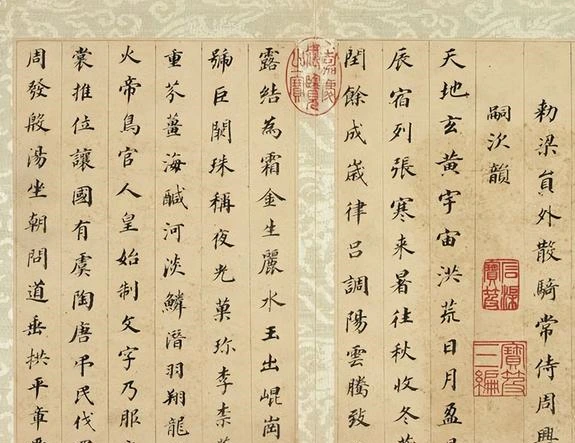 勅梁員外散騎常侍周興
嗣次韻
石渠寶笈
寶笈三編
天地玄黃宇宙洪荒日月盈
辰宿列張寒来暑往秋收冬
閏餘成歲律呂調陽雲騰致
嘉慶御覽之寶
露結為霜金生麗水玉出崐崗
號巨闕珠稱夜光菓珍李柰
重芥薑海鹹河淡鱗潛羽翔龍
火帝鳥官人皇始制文字乃服
裳推位讓國有虞陶唐弔民伐
周發殷湯坐朝問道垂拱平章